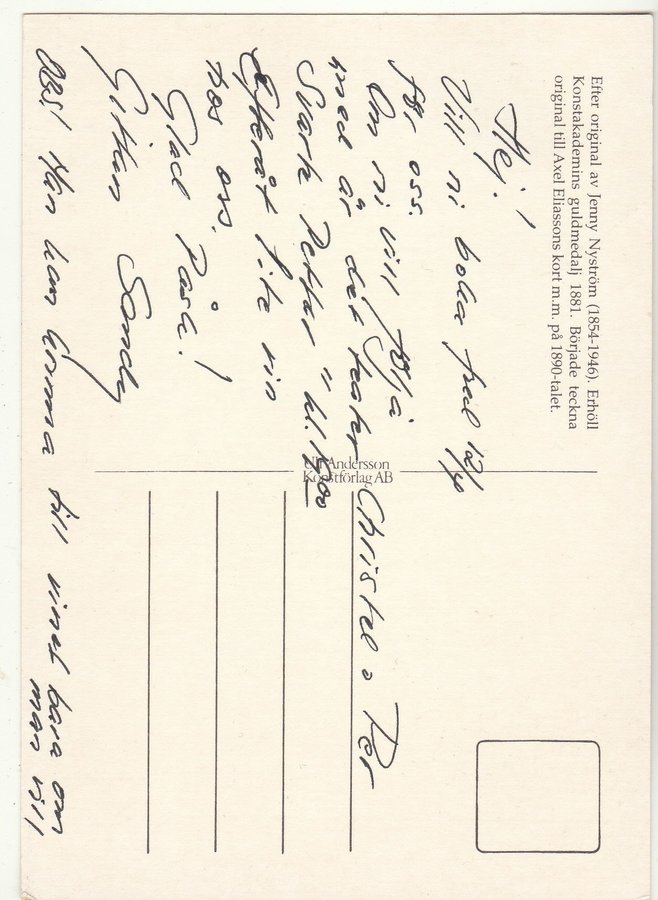 Efter original av Jenny Nyström (1854-1946). Erhöll
Konstakademins guldmedalj 1881. Började teckna
original till Axel Eliassons kort m.m. på 1890-talet.
Hej!
Vill ni boka fred 12/4
för oss.
Om ni vill följa
med är det teater
Svarte Petter" kl. 15.00
Efteråt lite vin
hos oss.
Glad Påsk!
Gittan Sandy
OBS! Man kan komma till vinet bara om
man vill
Ulf Andersson
Konstförlag AB
Christel o Per